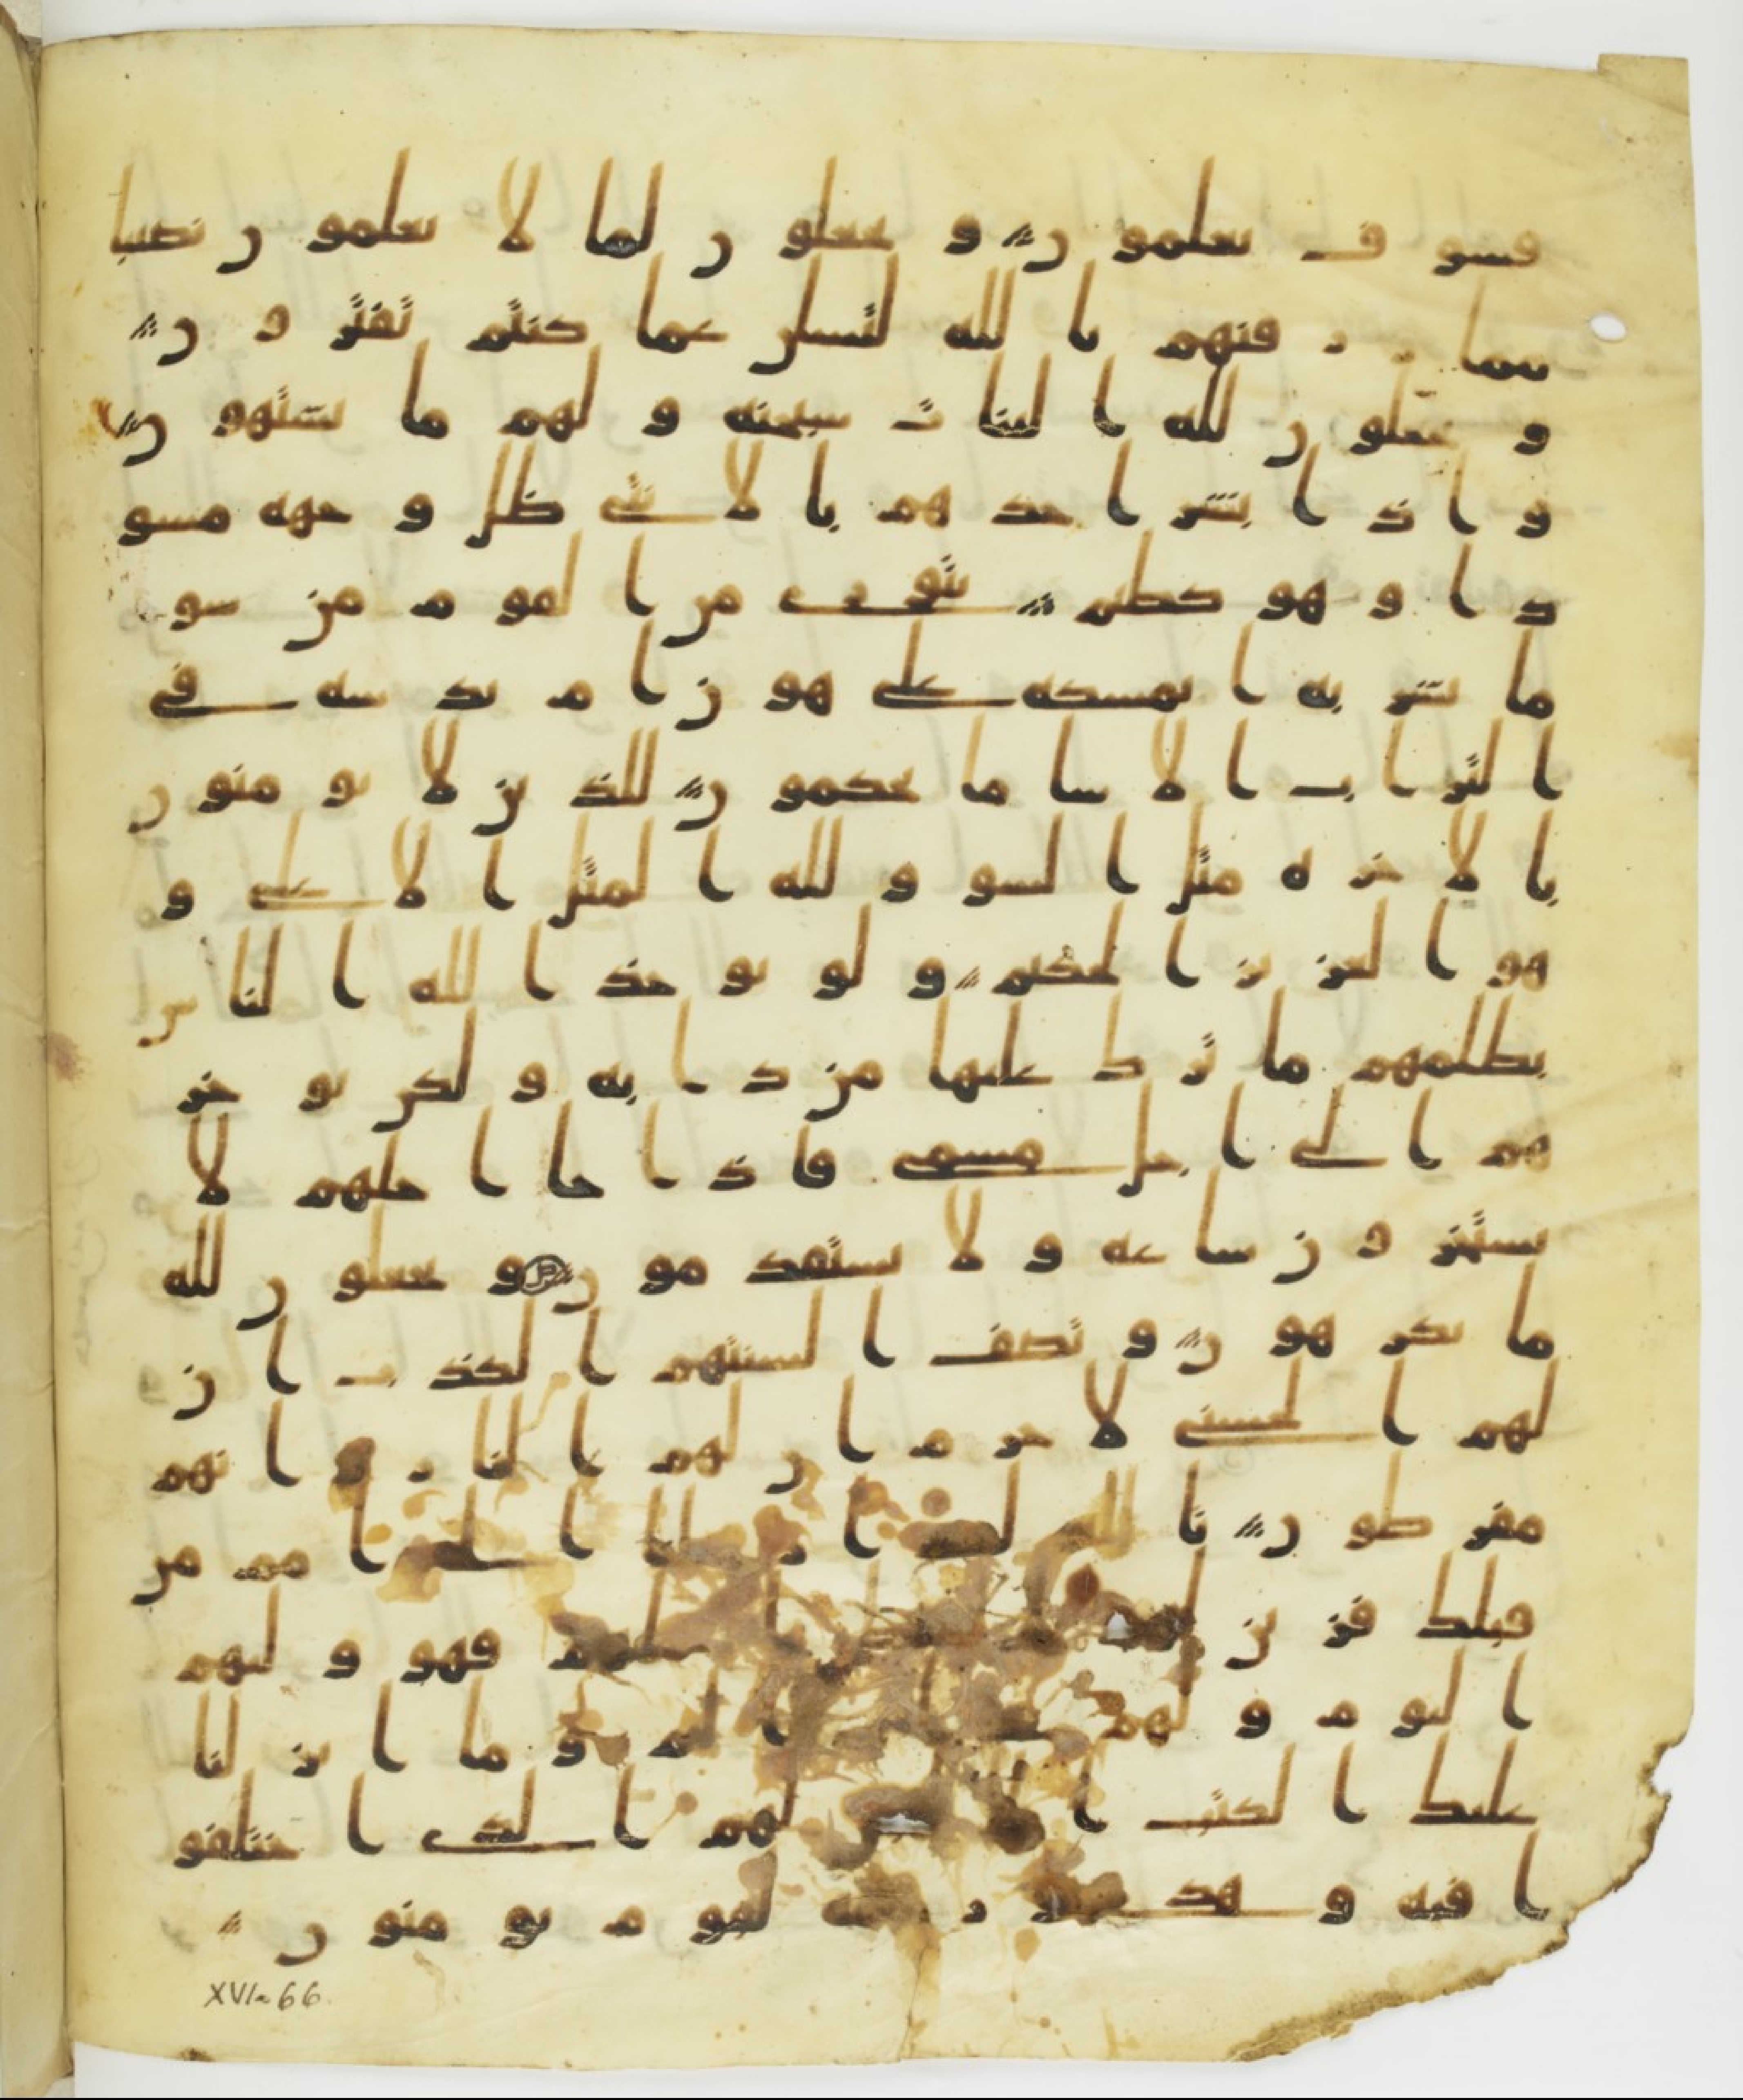 فسوف تعلمون ويجعلون لما لا يعلمون نصيبا
مما رزقنهم تالله لتسلن عما كنتم تفترون
ويجعلون لله البنات سبحنه ولهم ما يشتهون
واذا بشر احدهم بالانثى ظل وجهه مسو
دا وهو كظيم يتورى من القوم من سو
ما بشر به ايمسكه على هون ام يدسه في
التراب الا سا ما يحكمون للذين لا يومنون
بالاخره مثل السو ولله المثل الاعلى و
هو العزيز الحكيم ولو يوخذ الله الناس
بظلمهم ما ترك عليها من دابه ولكن يوخر
هم الى اجل مسمى فاذا جا اجلهم لا
يستخرون ساعه ولا يستقدمون ويجعلون لله
ما يكرهون وتصف السنتهم الكذب ان
لهم الحسنى لا جرم ان لهم النار وانهم
مفرطون تالله لقد ارسلنا الى امم من
قبلك فزين لهم فهو وليهم
اليوم ولهم وما انزلنا
عليك الكتب الا لهم الذي اختلفو
ا فيه وهدى ورحمه لقوم يومنون
XVI a 66